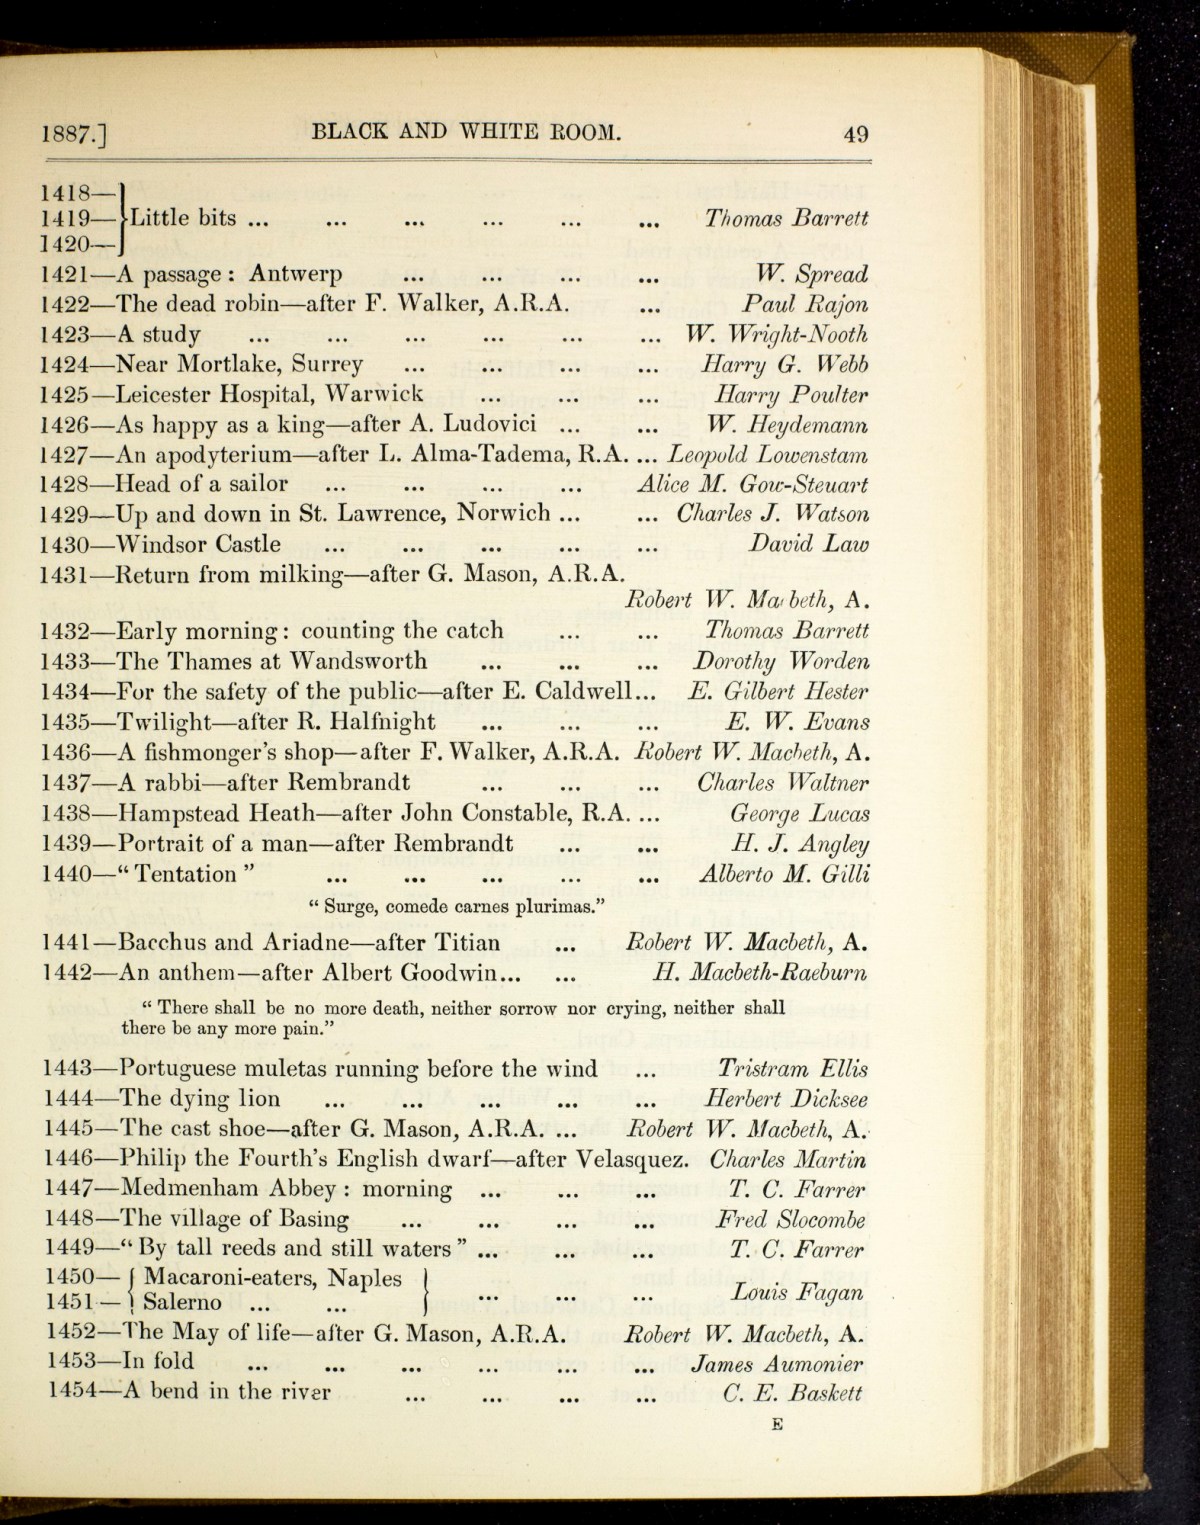 1887.] BLACK AND WHITE ROOM. 49
1418—
1419— Little bits ... ... ... ... ... ... Thomas Barrett
1420—
1421—A passage: Antwerp ... ... ... ... W. Spread
1422—The dead robin—after F. Walker, A.R.A. ... Paul Rajon
1423—A study ... ... ... ... ... ... W. Wright-Nooth
1424—Near Mortlake, Surrey ... ... ... ... Harry G. Webb
1425—Leicester Hospital, Warwick ... ... ... Harry Poulter
1426—As happy as a king—after A. Ludovici ... ... W. Heydemann
1427—An apodyterium—after L. Alma-Tadema, R.A. ... Leopold Lowenstam
1428—Head of a sailor ... ... ... ... Alice M. Gow-Steuart
1429—Up and down in St. Lawrence, Norwich ... ... Charles J. Watson
1430—Windsor Castle ... ... ... ... ... David Law
1431—Return from milking—after G. Mason, A.R.A.
Robert W. Macbeth, A.
1432—Early morning: counting the catch ... ... Thomas Barrett
1433—The Thames at Wandsworth ... ... ... Dorothy Worden
1434—For the safety of the public—after E. Caldwell... E. Gilbert Hester
1435—Twilight—after R. Halfnight ... ... ... E. W. Evans
1436—A fishmonger's shop—after F. Walker, A.R.A. Robert W. Macbeth, A.
1437—A rabbi—after Rembrandt ... ... ... Charles Waltner
1438—Hampstead Heath—after John Constable, R.A. ... George Lucas
1439—Portrait of a man—after Rembrandt ... ... H. J. Angley
1440—“ Tentation ” ... ... ... ... ... Alberto M. Gilli
“ Surge, comede carnes plurimas.”
1441—Bacchus and Ariadne—after Titian ... Robert W. Macbeth, A.
1442—An anthem—after Albert Goodwin... ... H. Macbeth-Raeburn
“ There shall be no more death, neither sorrow nor crying, neither shall
there be any more pain.”
1443—Portuguese muletas running before the wind ... Tristram Ellis
1444—The dying lion ... ... ... ... ... Herbert Dicksee
1445—The cast shoe—after G. Mason, A.R.A. ... Robert W. Macbeth, A.
1446—Philip the Fourth's English dwarf—after Velasquez. Charles Martin
1447—Medmenham Abbey: morning ... ... ... T. C. Farrer
1448—The village of Basing ... ... ... ... Fred Slocombe
1449—“ By tall reeds and still waters ” ... ... ... T. C. Farrer
1450— { Macaroni-eaters, Naples }
1451— { Salerno ... ... } ... ... ... Louis Fagan
1452—The May of life—after G. Mason, A.R.A. Robert W. Macbeth, A.
1453—In fold ... ... ... ... ... ... James Aumonier
1454—A bend in the river ... ... ... ... C. E. Baskett
E